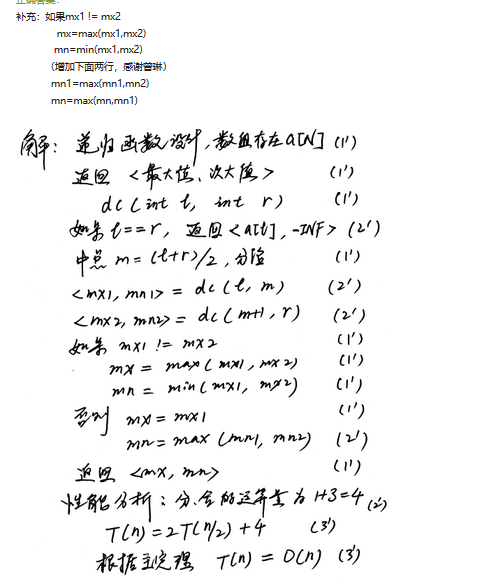 正确答案:
补充：如果mx1 != mx2
mx=max(mx1,mx2)
mn=min(mx1,mx2)
（增加下面两行，感谢曾琳）
mn1=max(mn1,mn2)
mn=max(mn,mn1)
解：递归函数设计，数组存在a[N] (1')
返回 <最大值、次大值> (1')
dc(int l, int r) (1')
如果 l==r, 返回<a[l], -INF> (2')
中点 m = (l+r)/2, 分治 (1')
<mx1, mn1> = dc(l, m) (2')
<mx2, mn2> = dc(m+1, r) (2')
如果 mx1 != mx2 (1')
mx = max(mx1, mx2) (1')
mn = min(mx1, mx2) (1')
否则 mx = mx1 (1')
mn = max(mn1, mn2) (2')
返回 <mx, mn> (1')
性能分析：分、合的运算量为 1+3=4 (2')
T(n) = 2T(n/2) + 4 (3')
根据主定理 T(n) = O(n) (3')